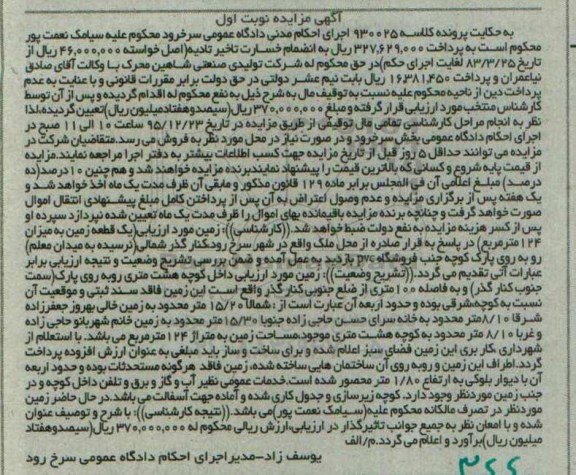 آگهی مزایده نوبت اول
به حکایت پرونده کلاسه ۹۳۰۰۲۵ اجرای احکام مدنی دادگاه عمومی سرخرود محکوم علیه سیامک نعمت پور
محکوم است به پرداخت ۳۲۷,۶۲۹,۰۰۰ ریال به انضمام خسارت تاخیر تادیه(اصل خواسته ۴۶,۰۰۰,۰۰۰ ریال از
تاریخ ۸۳/۳/۲۵ لغایت اجرای حکم)در حق محکوم له شرکت تولیدی صنعتی شاهین محرک با وکالت آقای صادق
نیاعمران و پرداخت ۱۶۳۸۱,۴۵۰ ریال بابت نیم عشر دولتی در حق دولت برابر مقررات قانونی و با عنایت به عدم
پرداخت دین از ناحیه محکوم علیه نسبت به توقیف مال به شرح ذیل به نفع محکوم له اقدام گردیده و پس از آن توسط
کارشناس منتخب مورد ارزیابی قرار گرفته و مبلغ ۳۷۰,۰۰۰,۰۰۰ ریال(سیصدوهفتادمیلیون ریال)تعیین گردیده،لذا
نظر به انجام مراحل کارشناسی تمامی مال توقیفی از طریق مزایده در تاریخ ۹۵/۱۲/۲۳ ساعت ۱۰ الی ۱۱ صبح در
اجرای احکام دادگاه عمومی بخش سرخرود و در صورت نیاز در محل مورد نظر به فروش می رسد.متقاضیان شرکت در
مزایده می توانند حداقل ۵ روز قبل از تاریخ مزایده جهت کسب اطلاعات بیشتر به دفتر اجرا مراجعه نمایند.مزایده
از قیمت پایه شروع و کسانی که بالاترین قیمت را پیشنهاد نمایندبرنده مزایده خواهند شد و هم چنین ۱۰درصد(ده
درصد) مبلغ اعلامی آن فی المجلس برابر ماده ۱۲۹ قانون مذکور و مابقی آن ظرف مدت یک ماه اخذ خواهد شد و
یک هفته پس از برگزاری مزایده و عدم وصول اعتراض به آن پس از پرداختن کامل مبلغ پیشنهادی انتقال اموال
صورت خواهد گرفت و چنانچه برنده مزایده باقیمانده بهای اموال را ظرف مدت یک ماه تعیین شده نپردازد سپرده او
پس از کسر هزینه مزایده به نفع دولت ضبط خواهد شد.((کارشناسی)): زمین مورد ارزیابی(یک قطعه زمین به میزان
۱۲۴مترمربع) در پاسخ به قرار صادره از محل ملک واقع در شهر سرخ رودکنار گذر شمالی(نرسیده به میدان معلم)
رو به روی پارک کوچه جنب فروشگاه pvc بازدید به عمل آمده و ضمن بررسی تشریح وضعیت و نتیجه ارزیابی برابر
عبارات آتی تقدیم می گردد.((تشریح وضعیت)): زمین مورد ارزیابی داخل کوچه هشت متری روبه روی پارک(سمت
جنوب کنار گذر) و به فاصله ۱۰۰متری از ضلع جنوبی کنار گذر واقع است این زمین فاقد سند ثبتی و موقعیت آن
نسبت به کوچه،شرقی بوده و حدود اربعه آن عبارت است از : شمالا ۱۵/۲۰ متر محدود به زمین خالی بهروز جعفرزاده
شرقا ۸/۱۰متر محدود به خانه سرای حسن حاجی زاده جنوبا ۱۵/۳۰متر محدود به زمین خانم شهربانو حاجی زاده
و غربا ۸/۱۰ متر محدود به کوچه هشت متری موجود،مساحت زمین به متراژ ۱۲۴مترمربع می باشد. با استعلام از
شهرداری کار بری این زمین فضای سبز اعلام شده و برای ساخت و ساز باید مبلغی به عنوان ارزش افزوده پرداخت
گردد.اطراف این زمین و روبه روی آن ساختمان هایی ساخته شده، زمین فاقد هرگونه مستحدثات بوده و حدود اربعه
آن با دیوار بلوکی به ارتفاع ۱/۸۰ متر محصور شده است.خدمات عمومی نظیر آب و گاز و برق و تلفن داخل کوچه و در
جنب زمین موردنظر وجود دارد، کوچه زیرسازی و جدول کاری شده و آماده جهت آسفالت می باشد.در حال حاضر زمین
موردنظر در تصرف مالکانه محکوم علیه(سیامک نعمت پور)می باشد.((نتیجه کارشناسی)): با شرح و توصیف عنوان
شده و با امعان نظر به جمیع جوانب تاثیرگذار در ارزیابی،ارزش ریالی محکوم له ۳۷۰,۰۰۰,۰۰۰ ریال(سیصدوهفتاد
میلیون ریال)برآورد و اعلام می گردد.م/الف
یوسف زاد-مدیر اجرای احکام دادگاه عمومی سرخ رود